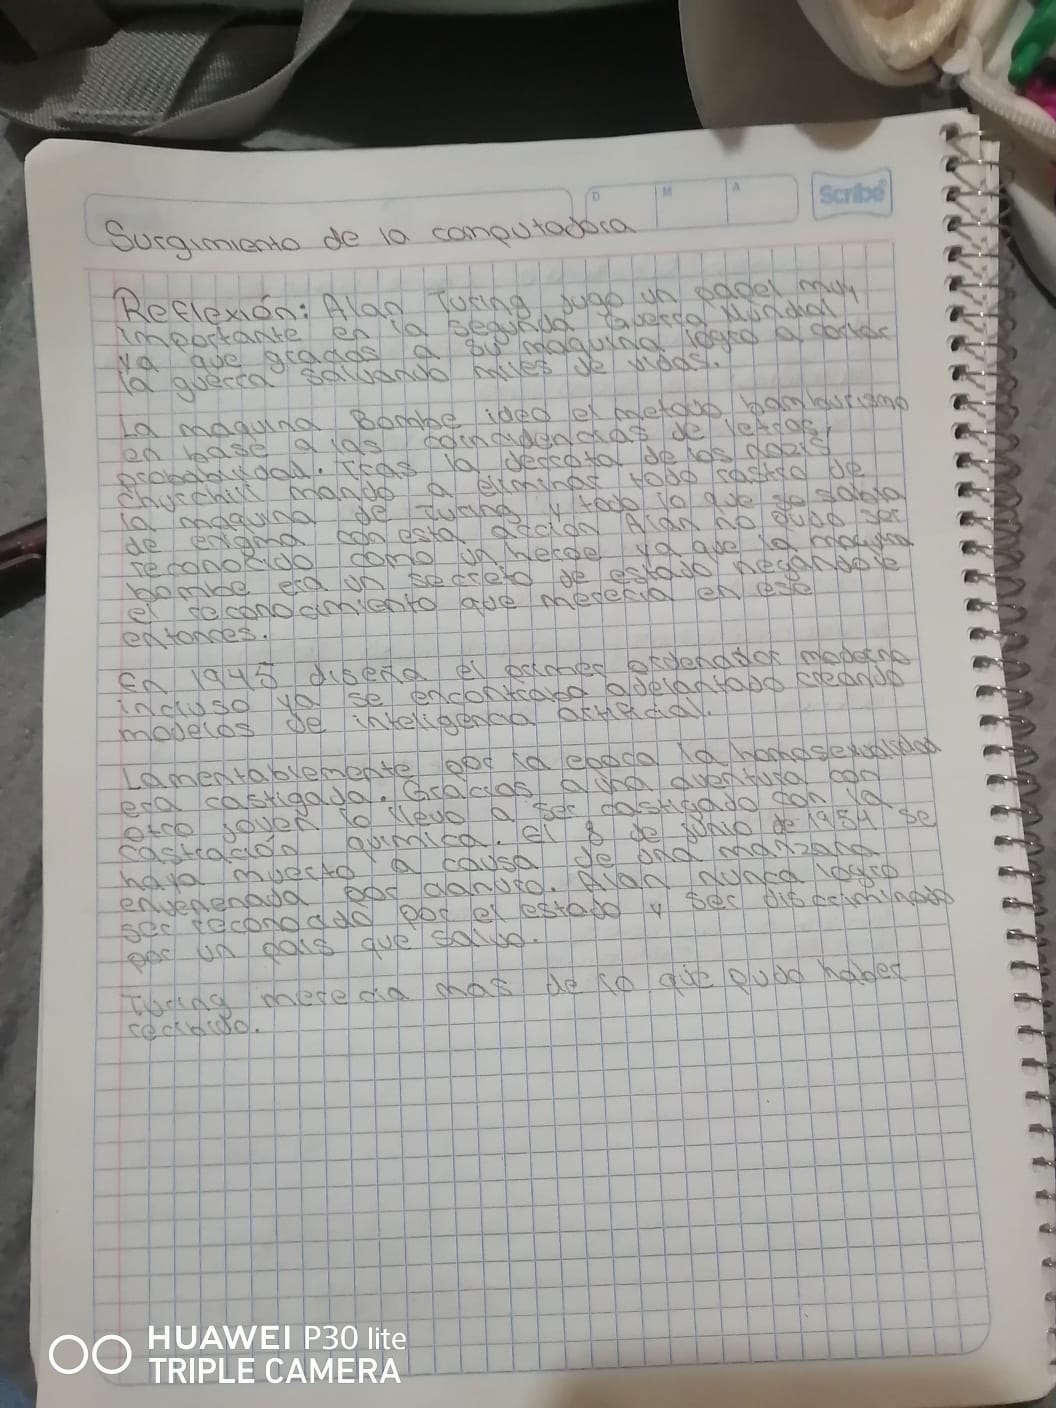 Scribe
D M A
Surgimiento de la computadora
Reflexión: Alan Turing jugo un papel muy
importante en la segunda Guerra Mundial
ya que gracias a su maquina logro a cortar
la guerra salvando miles de vidas.
La maquina Bombe ideo el metodo bamburismo
en base a las coincidencias de letras,
probabilidad. Tras la derrota de los nazis
Churchill mando a eliminar todo rastro de
la maquina de Turing y todo lo que se sabia
de enigma con esta accion Alan no pudo ser
reconocido como un heroe ya que la maquina
bombe era un secreto de estado negandole
el reconocimiento que merecia en ese
entonces.
En 1945 diseña el primer ordenador moderno
incluso ya se encontraba adelantado creando
modelos de inteligencia artificial.
Lamentablemente por la epoca la homosexualidad
era castigada. Gracias a una aventura con
otro joven lo llevo a ser castigado con la
castración quimica. el 8 de junio de 1954 se
haya muerto a causa de una manzana
envenenada por cianuro. Alan nunca logro
ser reconocido por el estado y ser discriminado
por un pais que salvo.
Turing merecia mas de lo que pudo haber
recibido.
HUAWEI P30 lite
TRIPLE CAMERA